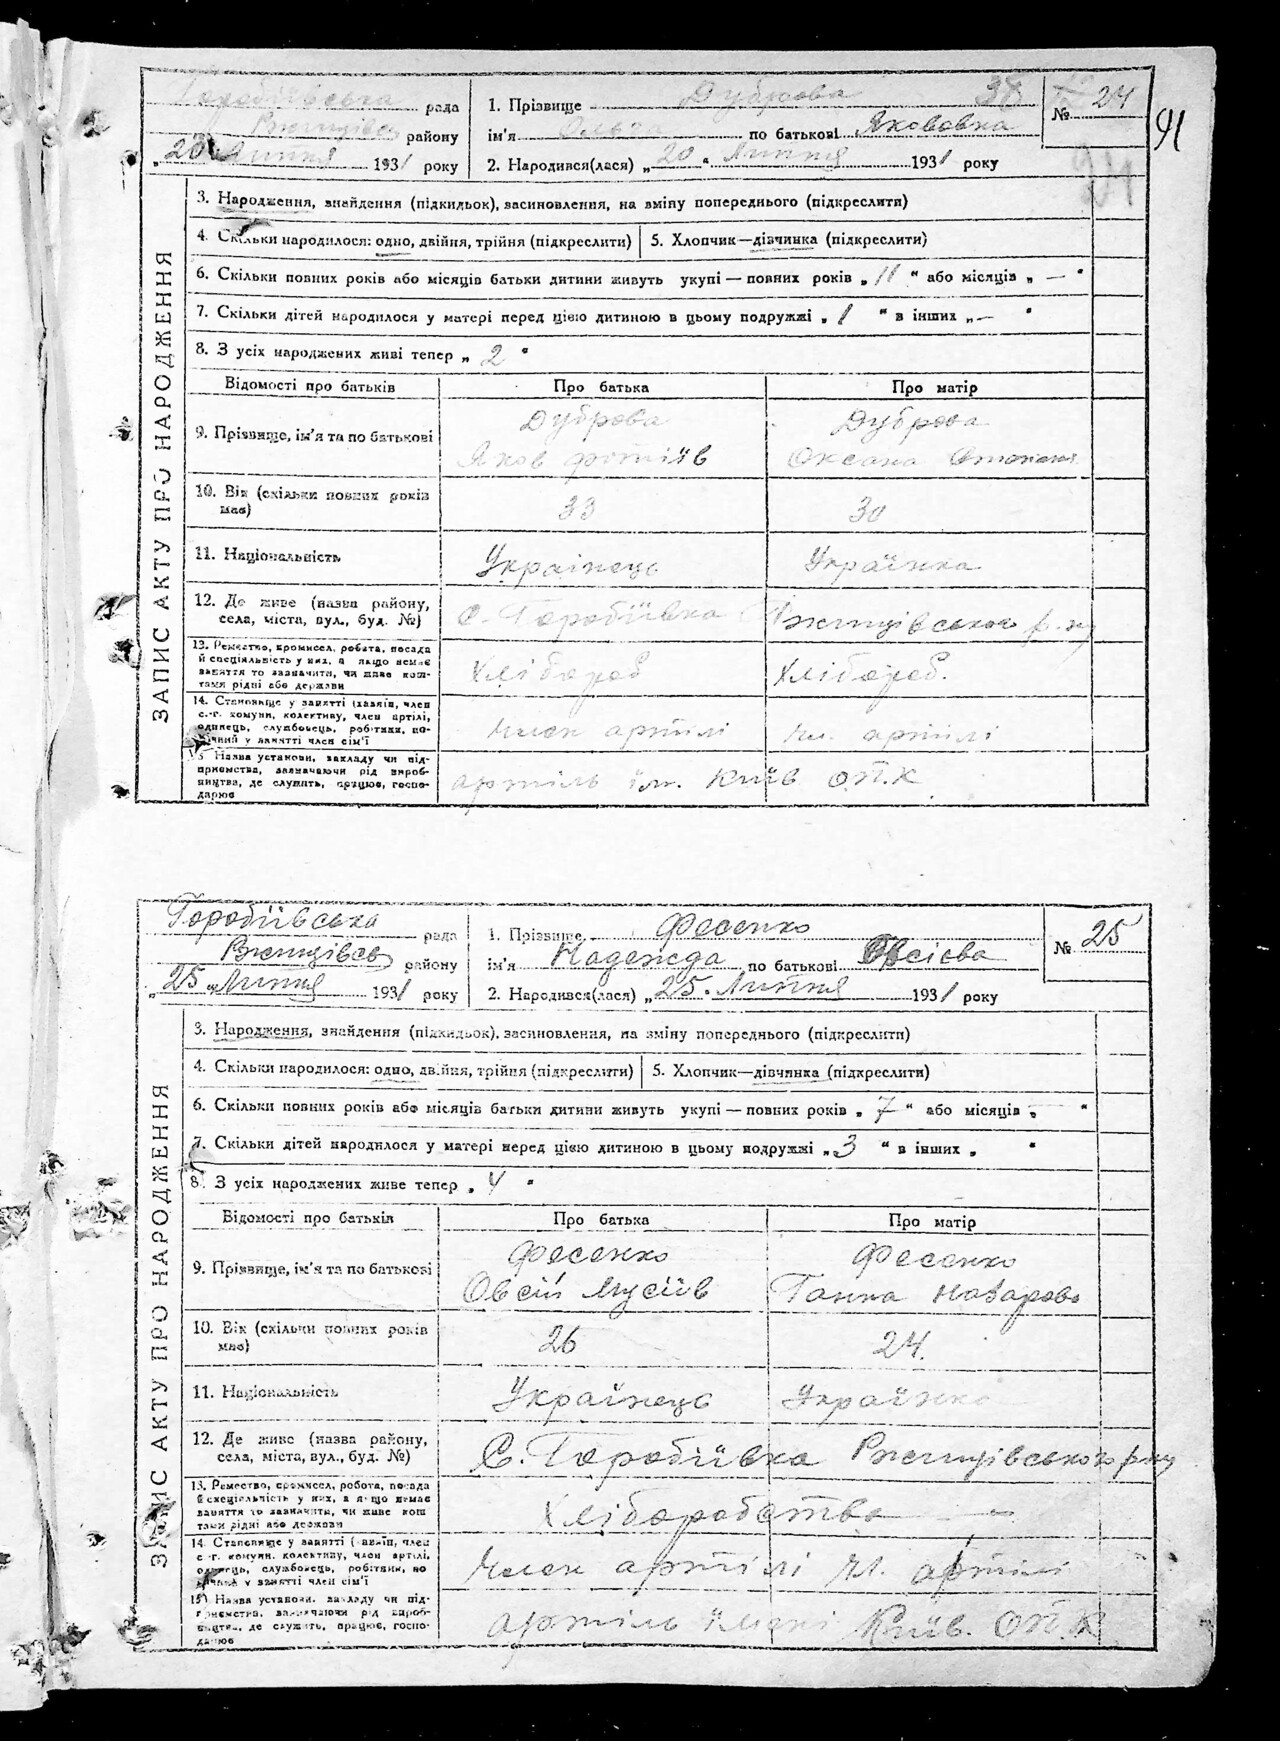 Горобіївська рада
Ржищівськ району
„20" Липня 1931 року
1. Прізвище Дуброва 38
ім'я Ольга по батькові Якововна
2. Народився(лася) „20" Липня 1931 року
№ 24
91
34
ЗАПИС АКТУ ПРО НАРОДЖЕННЯ
3. Народження, знайдення (підкидьок), засиновлення, на зміну попереднього (підкреслити)
4. Скільки народилося: одно, двійня, трійня (підкреслити) 5. Хлопчик—дівчинка (підкреслити)
6. Скільки повних років або місяців батьки дитини живуть укупі — повних років „11" або місяців „—"
7. Скільки дітей народилося у матері перед цією дитиною в цьому подружжі „1" в інших „—"
8. З усіх народжених живі тепер „2"
Відомості про батьків Про батька Про матір
9. Прізвище, ім'я та по батькові
Дуброва Дуброва
Яков Фотіїв Оксана
10. Вік (скільки повних років має) 33 30
11. Національність Українець Українка
12. Де живе (назва району, села, міста, вул., буд. №) С. Горобіївка Ржищівського р-ну
13. Ремество, промисел, робота, посада й спеціяльність у них, а якщо немає заняття то зазначити, чи живе коштами рідні або держави
Хлібороб Хлібороб.
14. Становище у занятті (хазяїн, член с.-г. комуни, колективу, член артілі, одинець, службовець, робітник, помічний у занятті член сім'ї
Член артілі Чл. артілі
15. Назва установи, закладу чи підприємства, зазначаючи рід виробництва, де служить, працює, господарює
артіль ім. Київ О.П.К
Горобіївська рада
Ржищівськ району
„25" Липня 1931 року
1. Прізвище Фесенко
ім'я Надежда по батькові Овсієва
2. Народився(лася) „25" Липня 1931 року
№ 25
ЗАПИС АКТУ ПРО НАРОДЖЕННЯ
3. Народження, знайдення (підкидьок), засиновлення, на зміну попереднього (підкреслити)
4. Скільки народилося: одно, двійня, трійня (підкреслити) 5. Хлопчик—дівчинка (підкреслити)
6. Скільки повних років або місяців батьки дитини живуть укупі — повних років „7" або місяців „—"
7. Скільки дітей народилося у матері перед цією дитиною в цьому подружжі „3" в інших „ "
8. З усіх народжених живе тепер „4"
Відомості про батьків Про батька Про матір
9. Прізвище, ім'я та по батькові
Фесенко Фесенко
Овсій Мусіїв Ганна Назарова
10. Вік (скільки повних років має) 26 24.
11. Національність Українець Українка
12. Де живе (назва району, села, міста, вул., буд. №) С. Горобіївка Ржищівського р-ну
13. Ремество, промисел, робота, посада й спеціяльність у них, а якщо немає заняття то зазначити, чи живе коштами рідні або держави
Хліборобство —
14. Становище у занятті (хазяїн, член с.-г. комуни, колективу, член артілі, одинець, службовець, робітник, помічний у занятті член сім'ї
Член артілі Чл. артілі
15. Назва установи, закладу чи підприємства, зазначаючи рід виробництва, де служить, працює, господарює
артіль імені Київ. ОП.К